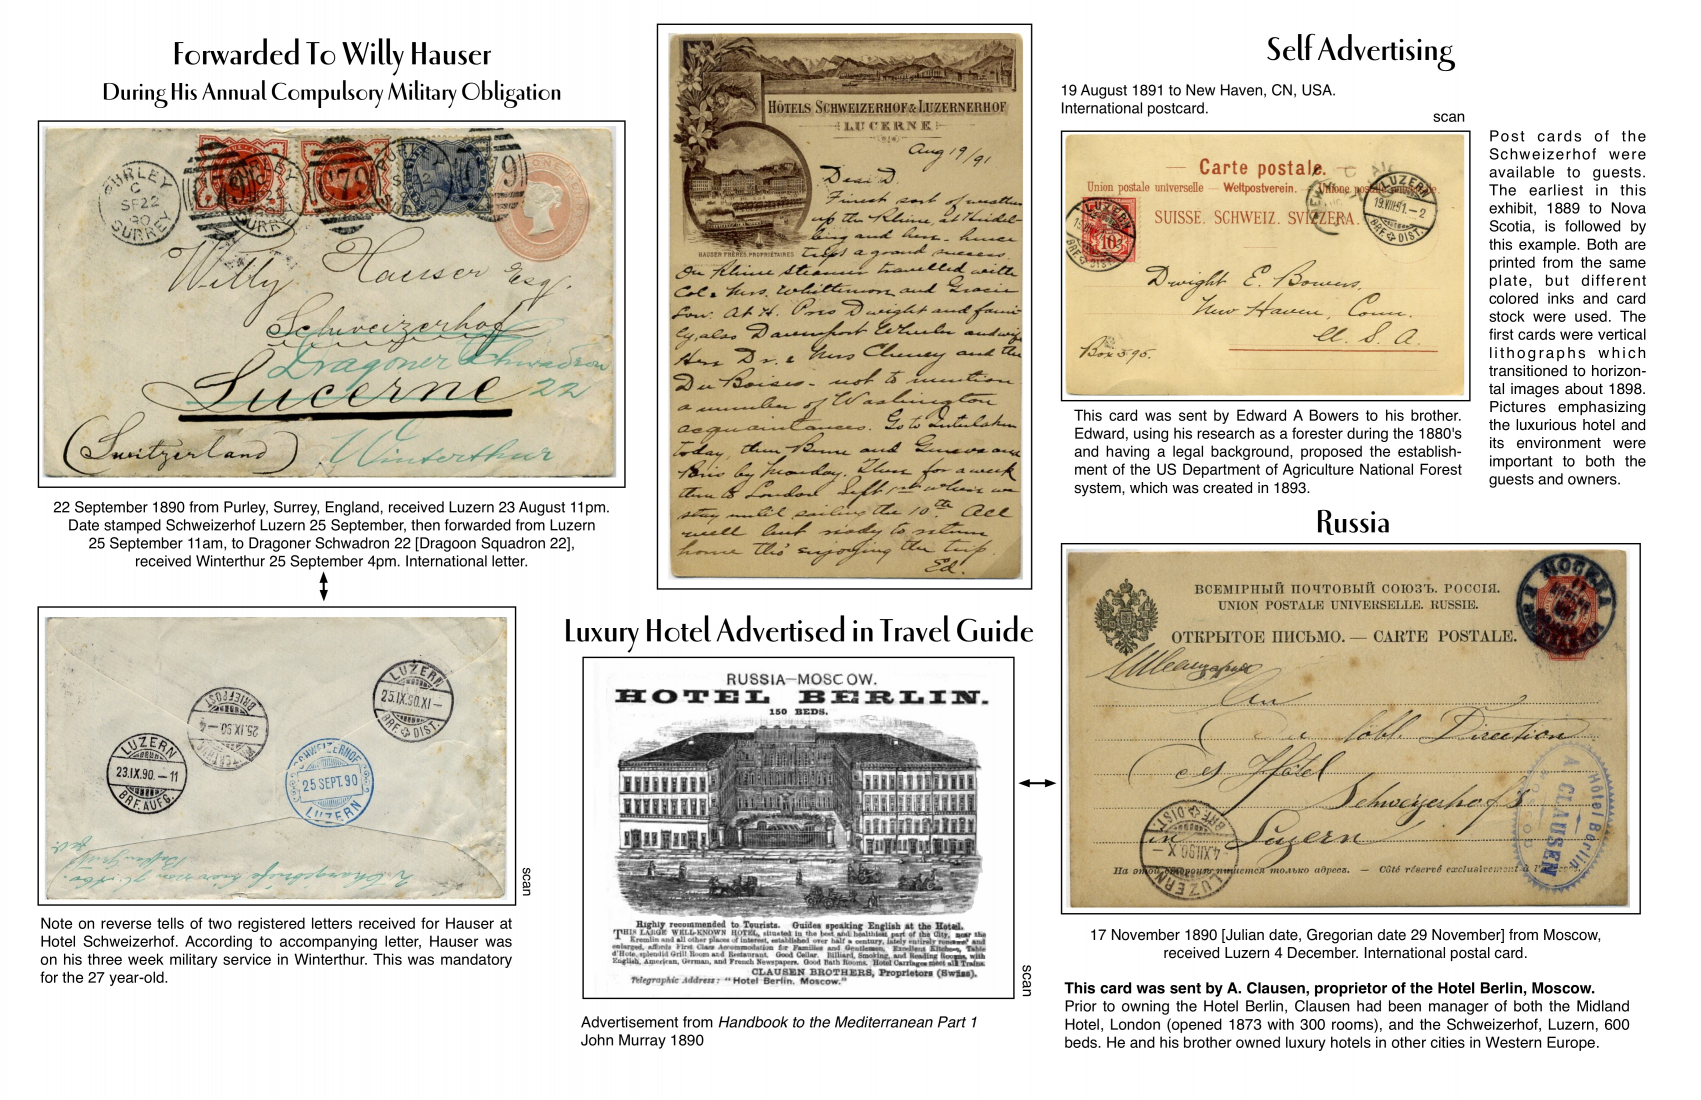 Forwarded To Willy Hauser
During His Annual Compulsory Military Obligation
PURLEY
C
SP 22
90
SURREY
Willy Hauser Esq.
Schweizerhof
Dragoner Schwadron
22
Lucerne
(Switzerland)
Winterthur
22 September 1890 from Purley, Surrey, England, received Luzern 23 August 11pm.
Date stamped Schweizerhof Luzern 25 September, then forwarded from Luzern
25 September 11am, to Dragoner Schwadron 22 [Dragoon Squadron 22],
received Winterthur 25 September 4pm. International letter.
LUZERN
25.IX.90.XI—
BRF. DIST.
BRIEFPOST
25.IX.90.—4
LUZERN
23.IX.90.—11
BRF. AUFG.
SCHWEIZERHOF
25 SEPT. 90
LUZERN
scan
Note on reverse tells of two registered letters received for Hauser at
Hotel Schweizerhof. According to accompanying letter, Hauser was
on his three week military service in Winterthur. This was mandatory
for the 27 year-old.
HÔTELS SCHWEIZERHOF & LUZERNERHOF
LUCERNE
HAUSER FRÈRES, PROPRIETAIRES
Aug 19/91
Dear D.
Finest sort of weather
up the Rhine to Heidel
berg and hence
trips a grand success.
On Rhine steamer travelled with
Col & Mrs. Whittemore and Gracie
Low. At H. Pres Dwight and fam
ly, also Davenport Wheeler and wife
Herr Dr. & Mrs Cheney and the
Du Boises - not to mention
a number of Washington
acquaintances. Go to Interlaken
today, then Berne and Geneva and
Paris by Monday. There for a week
then to London Sept 1st where we
stay until sailing the 10th. All
well but ready to return
home tho' enjoying the trip.
Ed.
Luxury Hotel Advertised in Travel Guide
RUSSIA—MOSCOW.
HOTEL BERLIN.
150 BEDS.
Highly recommended to Tourists. Guides speaking English at the Hotel.
THIS LARGE WELL-KNOWN HOTEL, situated in the best and healthiest part of the City, near the
Kremlin and all other places of interest, established over half a century, lately entirely renewed and
enlarged, affords First Class Accommodation for Families and Gentlemen. Excellent Kitchen, Table
d'Hote, splendid Grill Room and Restaurant. Good Cellar. Billiard, Smoking, and Reading Rooms, with
English, American, German, and French Newspapers. Good Bath Rooms. Hotel Carriages meet all Trains.
CLAUSEN BROTHERS, Proprietors (Swiss).
Telegraphic Address: "Hotel Berlin. Moscow."
scan
Advertisement from Handbook to the Mediterranean Part 1
John Murray 1890
Self Advertising
19 August 1891 to New Haven, CN, USA.
International postcard.
scan
Carte postale.
Union postale universelle — Weltpostverein. — Unione postale universale.
SUISSE. SCHWEIZ. SVIZZERA.
LUZERN
10
BRF. DIST.
LUZERN
19.VIII.91.—2
BRF. DIST.
Dwight E. Bowers.
New Haven, Conn.
U. S. A.
Box 595.
This card was sent by Edward A Bowers to his brother.
Edward, using his research as a forester during the 1880's
and having a legal background, proposed the establish-
ment of the US Department of Agriculture National Forest
system, which was created in 1893.
Post cards of the
Schweizerhof were
available to guests.
The earliest in this
exhibit, 1889 to Nova
Scotia, is followed by
this example. Both are
printed from the same
plate, but different
colored inks and card
stock were used. The
first cards were vertical
lithographs which
transitioned to horizon-
tal images about 1898.
Pictures emphasizing
the luxurious hotel and
its environment were
important to both the
guests and owners.
Russia
ВСЕМІРНЫЙ ПОЧТОВЫЙ СОЮЗЪ. РОССІЯ.
UNION POSTALE UNIVERSELLE. RUSSIE.
ОТКРЫТОЕ ПИСЬМО. — CARTE POSTALE.
МОСКВА
Швейцарія
An
löbl. Direction
des Hôtel
Schweizerhof's
in Luzern
LUZERN
4.XII.90.X—
BRF. DIST.
Hôtel Berlin
A. CLAUSEN
MOSCOU
На этой сторонѣ пишется только адресъ. — Côté réservé exclusivement à l'adresse.
17 November 1890 [Julian date, Gregorian date 29 November] from Moscow,
received Luzern 4 December. International postal card.
This card was sent by A. Clausen, proprietor of the Hotel Berlin, Moscow.
Prior to owning the Hotel Berlin, Clausen had been manager of both the Midland
Hotel, London (opened 1873 with 300 rooms), and the Schweizerhof, Luzern, 600
beds. He and his brother owned luxury hotels in other cities in Western Europe.